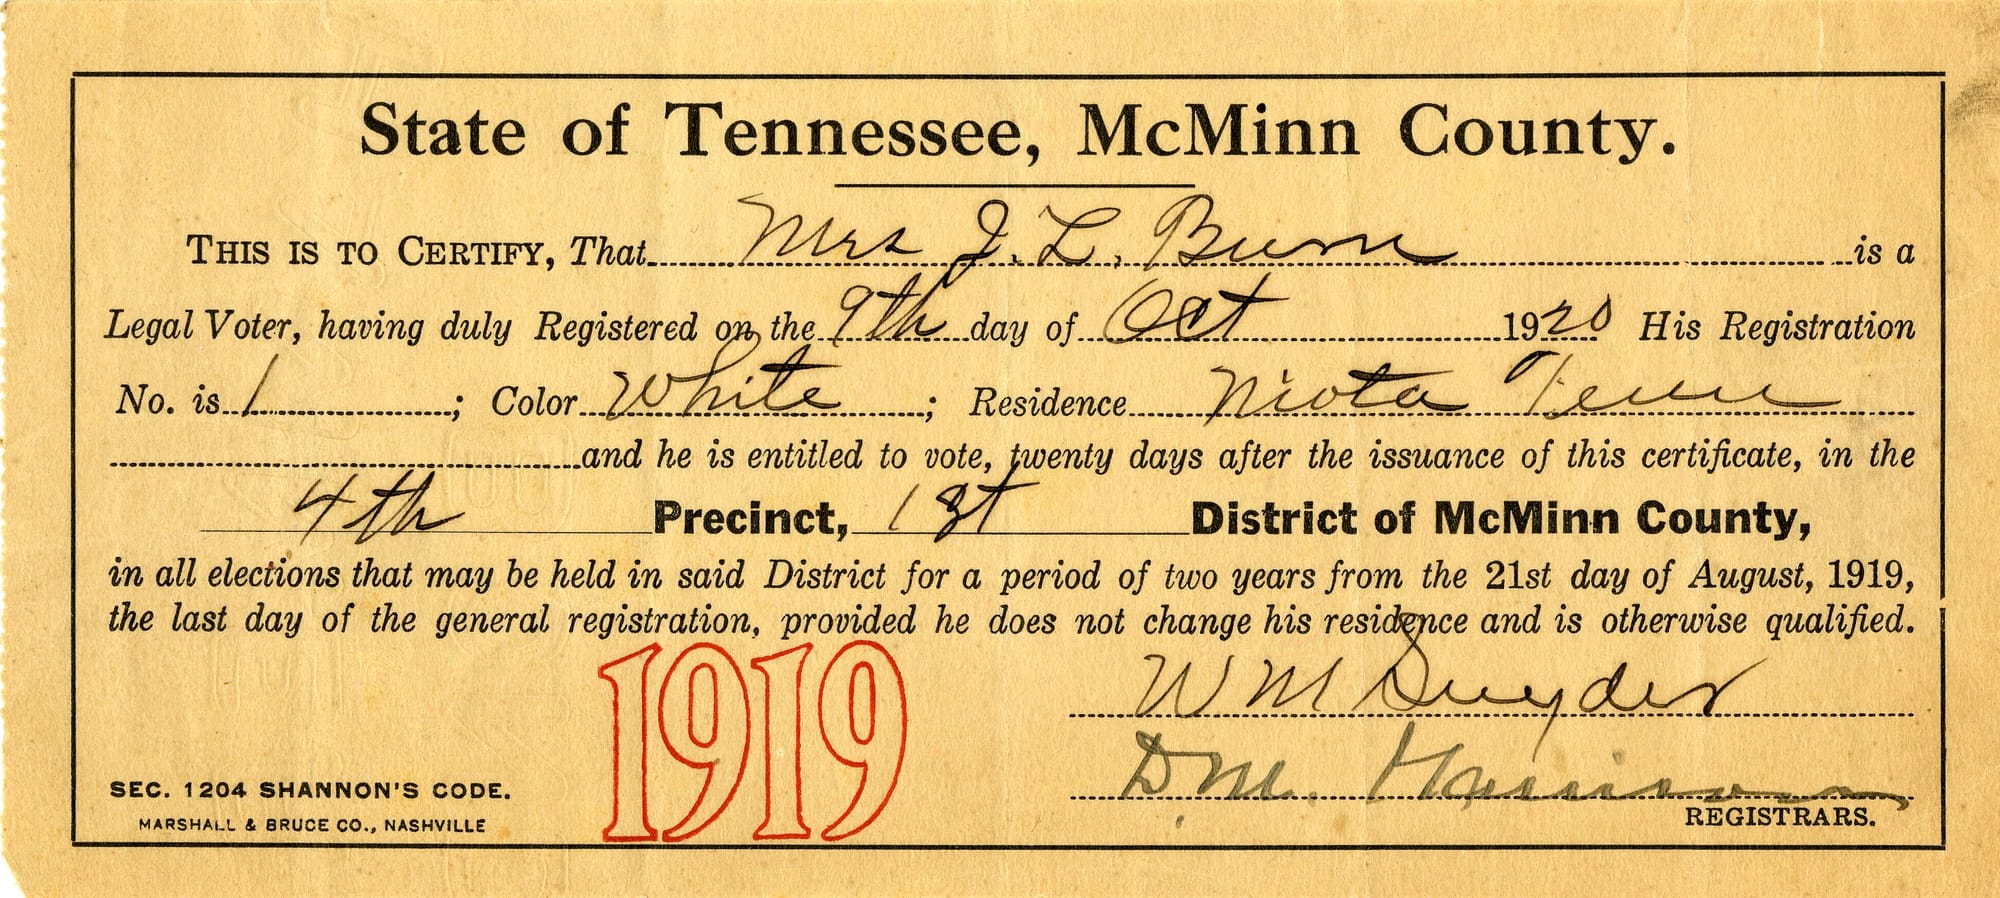 State of Tennessee, McMinn County.
THIS IS TO CERTIFY, That Mrs J. L. Burn is a
Legal Voter, having duly Registered on the 9th day of Oct 1920 His Registration
No. is 1; Color White; Residence Niota Tenn
and he is entitled to vote, twenty days after the issuance of this certificate, in the
4th Precinct, 1st District of McMinn County,
in all elections that may be held in said District for a period of two years from the 21st day of August, 1919,
the last day of the general registration, provided he does not change his residence and is otherwise qualified.
1919
W M Snyder
D M. Harrison
REGISTRARS.
SEC. 1204 SHANNON'S CODE.
MARSHALL & BRUCE CO., NASHVILLE